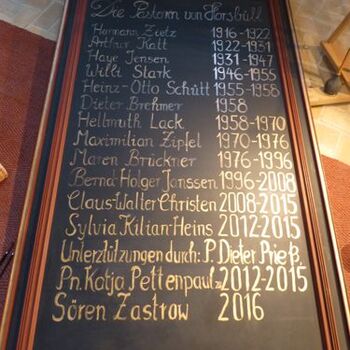 Die Pastorn von Horsbüll
Harmann Zietz 1916-1922
Arthur Katt 1922-1931
Haye Jensen 1931-1947
Willi Stark 1946-1955
Heinz-Otto Schütt 1955-1958
Dieter Brehmer 1958
Hellmuth Lack 1958-1970
Maximilian Zipfel 1970-1976
Maren Brückner 1976-1996
Bernd-Holger Janssen 1996-2008
Claus-Walter Christen 2008-2015
Sylvia Kilian-Heins 2012-2015
Unterztützungen durch: P. Dieter Prieß
Pn. Katja Pettenpaul 2012-2015
Sören Zastrow 2016